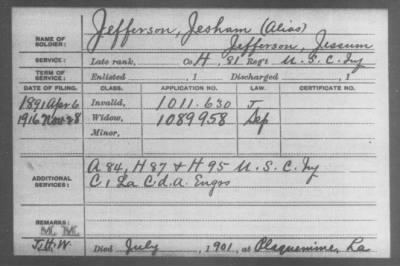 NAME OF SOLDIER: Jefferson, Jesham (Alias)
Jefferson, Jessum
SERVICE: Late rank, Co. H, 81" Reg't U.S.C. Inf
TERM OF SERVICE: Enlisted , 1 Discharged , 1
DATE OF FILING. CLASS. APPLICATION NO. LAW. CERTIFICATE NO.
1891 Apr 6 Invalid, 1011.630 J
1916 Nov 28 Widow, 1089958 Sep
Minor,
ADDITIONAL SERVICES: A 84, H 87 & H 95 U.S.C. Inf
C 1 La C'd. A. Engrs
REMARKS:
M. M.
J.H.W. Died July , 1901, at Plaquemine, La